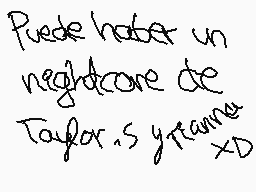 Puede haber un
nightcore de
Taylor.s y rianna
XD